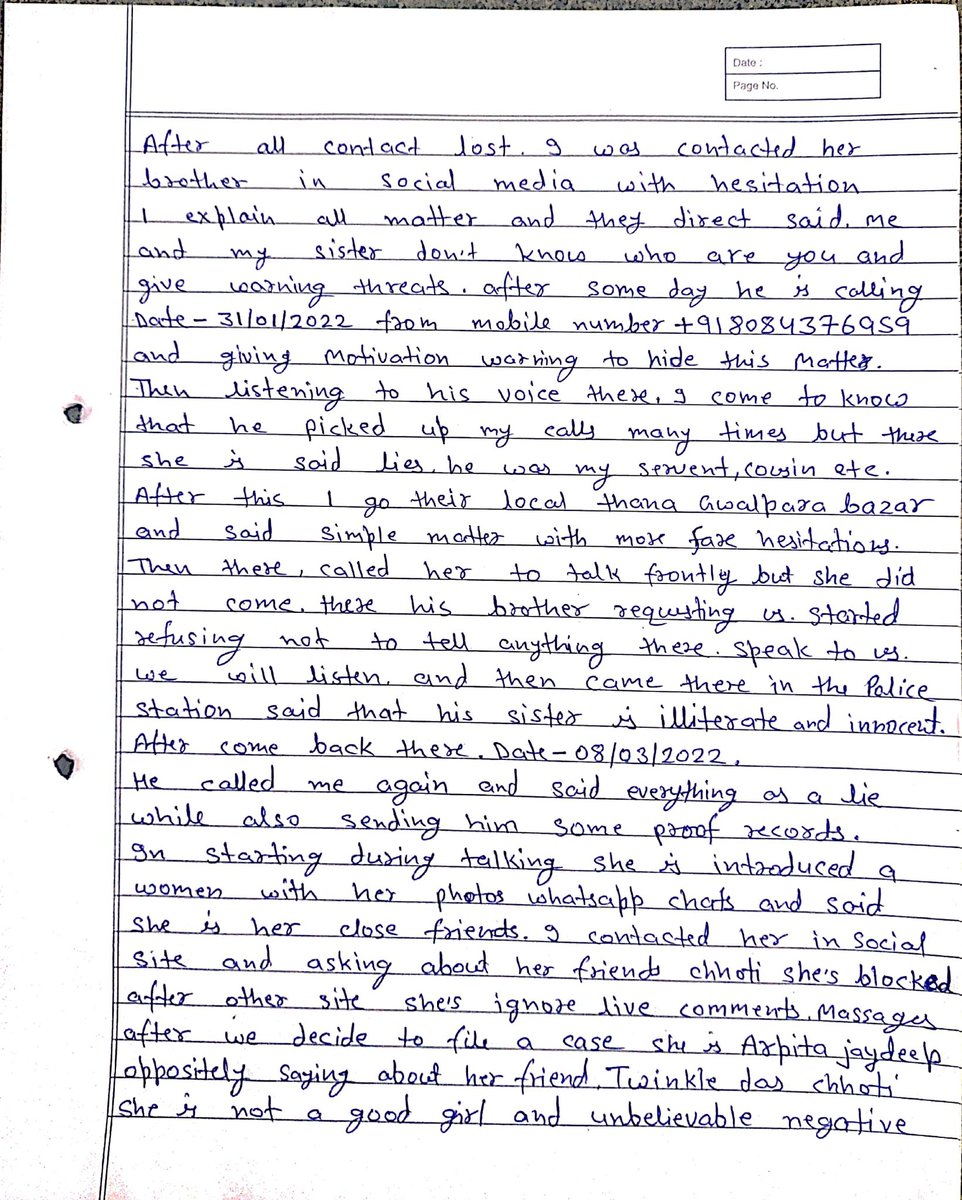 Date :
Page No.
After all contact lost. I was contacted her
brother in social media with hesitation
I explain all matter and they direct said. me
and my sister don't know who are you and
give warning threats. after some day he is calling
Date - 31/01/2022 from mobile number +918084376959
and giving Motivation warning to hide this Matter.
Then listening to his voice there, I come to know
that he picked up my calls many times but there
she is said lies, he was my servent, cousin etc.
After this I go their local thana Gwalpara bazar
and said simple matter with more fare hesitations.
Then there, called her to talk frontly but she did
not come. there his brother requsting us. started
refusing not to tell anything there. Speak to us.
we will listen. and then came there in the Police
station said that his sister is illiterate and innocent.
After come back there. Date - 08/03/2022.
He called me again and said everything as a lie
while also sending him some proof records.
In starting during talking she is introduced a
women with her photos whatsapp chats and said
she is her close friends. I contacted her in social
site and asking about her friends chhoti she's blocked
after other site she's ignore live comments. Massages
after we decide to file a case she is Arpita jaydeep
oppositely saying about her friend. Twinkle das chhoti
she is not a good girl and unbelievable negative